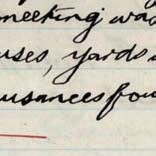 meeting was
uses, yards
usances fou